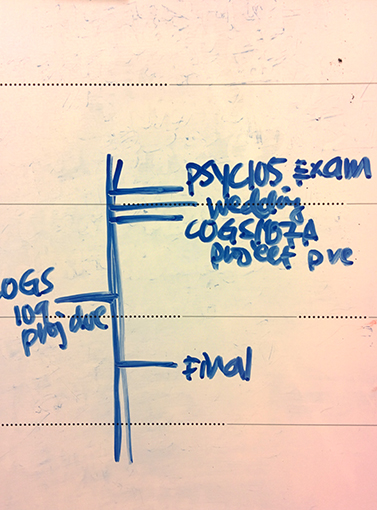 PSYC105 Exam
Wedding
COGS107A
project due
COGS
109
proj due
Final